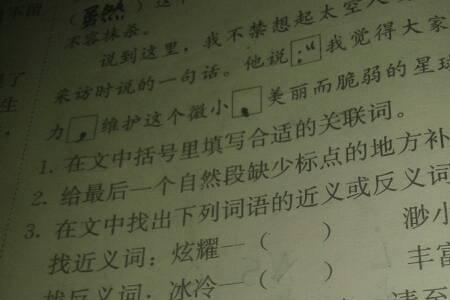 (虽然)这
不容抹杀。
说到这里,我不禁想起太空人
采访时说的一句话。他说:“我觉得大家
力,维护这个微小、美丽而脆弱的星球
1. 在文中括号里填写合适的关联词。
2. 给最后一个自然段缺少标点的地方补
3. 在文中找出下列词语的近义或反义词
找近义词:炫耀—( ) 渺小
找反义词:冰冷—( ) 丰富